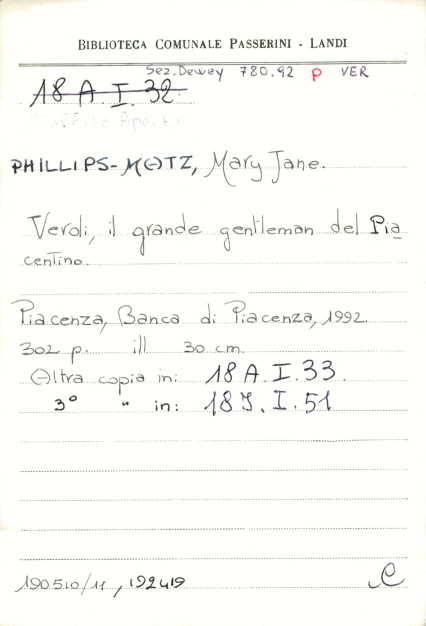 BIBLIOTECA COMUNALE PASSERINI - LANDI
Sez. Dewey 780.92 p VER
18 A I. 32
PHILLIPS-MOTZ, Mary Jane.
Verdi, il grande gentleman del Pia
centino.
Piacenza, Banca di Piacenza, 1992
302 p. ill 30 cm.
Altra copia in: 18 A. I. 33.
3° " in: 18 I. I. 51
190510/11, 192419